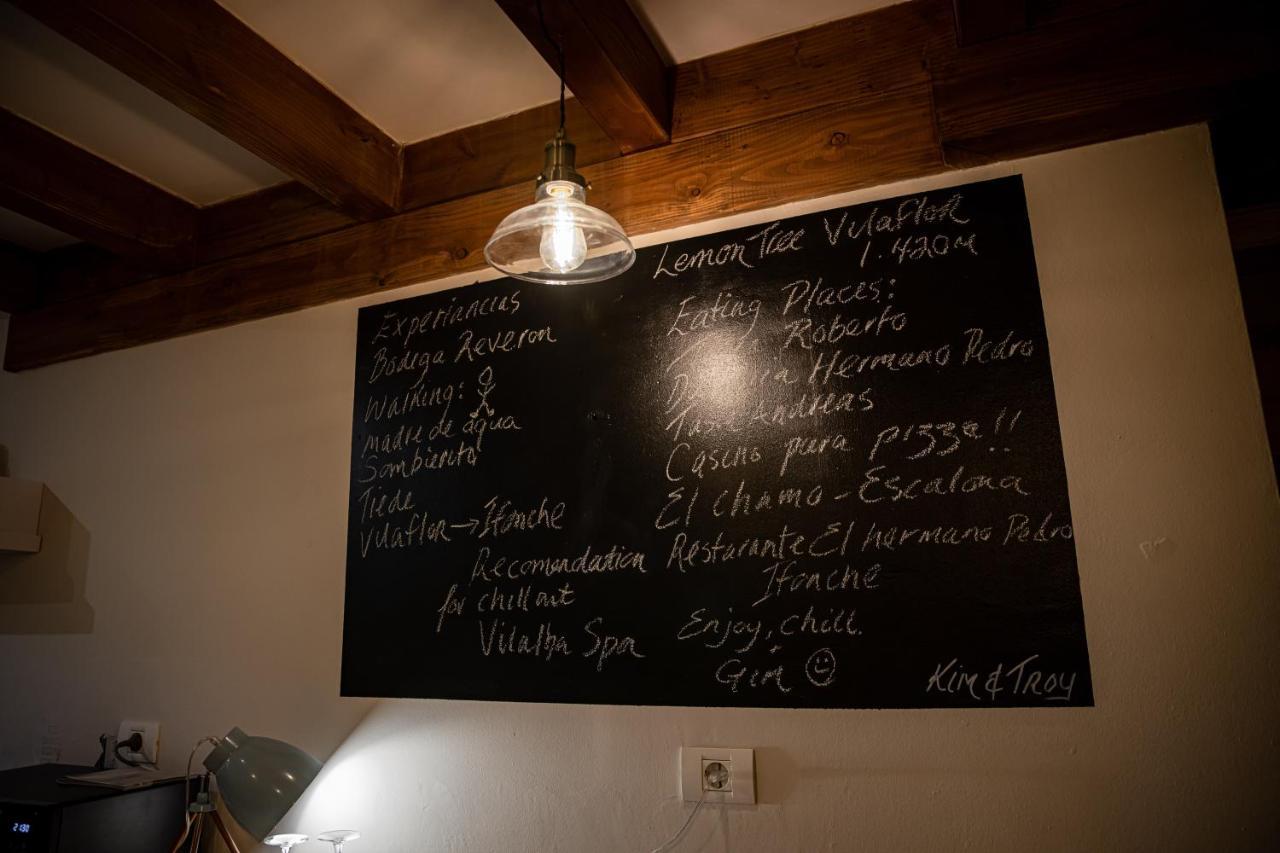 Experiancias
Bodega Reveron
Walking:
madre de agua
Sombierito
Tiede
Vilaflor → Ifonche
Recomendation
for chill out
Vilalba Spa
Lemon Tree Vilaflor
1.420m
Eating Places:
Roberto
Hermano Pedro
Andreas
Casino pura pizza!!
El chamo - Escalona
Restarante El hermano Pedro
Ifonche
Enjoy, chill.
Gin
Kim & Troy
21:30